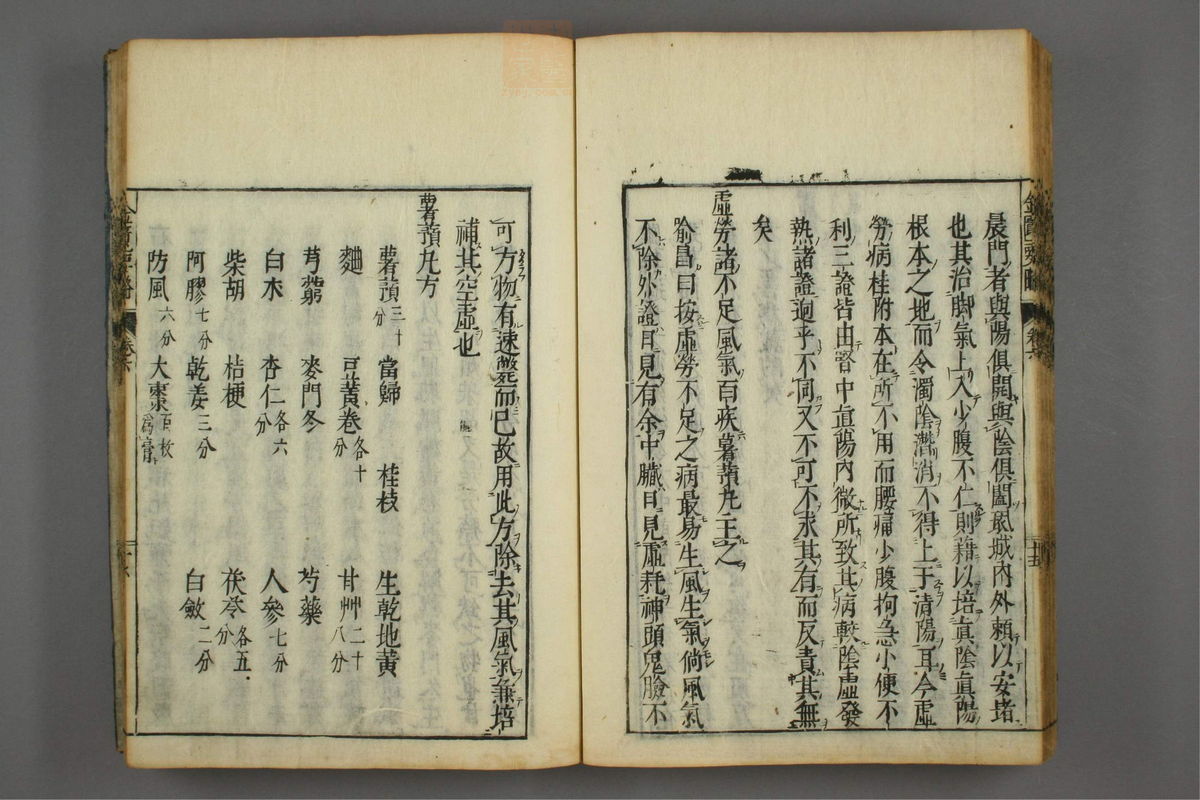 晨門者與陽俱開與陰俱闔凰城內外賴以安堵
也其治脚氣上入少腹不仁則藉以培眞陰眞陽
根本之地而令濁陰潛消不得上于清陽耳今虛
勞病桂附本在所不用而腰痛少腹拘急小便不
利三證皆由腎中眞陽內微所致其病較陰虛發
熱諸證迥乎不同又不可不求其有而反責其無
矣
虛勞諸不足風氣百疾薯蕷丸主之
喻昌曰按虛勞不足之病最易生風生氣倘風氣
不除外證日見有余中臟日見虛耗神頭鬼臉不
可方物有速斃而已故用此方除去其風氣兼培
補其空虛也
薯蕷丸方
薯蕷三十分 當歸 桂枝 生乾地黃
麯 豆黃卷各十分 甘艸二十八分
芎藭 麥門冬 芍藥
白朮 杏仁各六分 人參七分
柴胡 桔梗 茯苓各五分
阿膠七分 乾姜三分 白斂二分
防風六分 大棗百枚爲膏